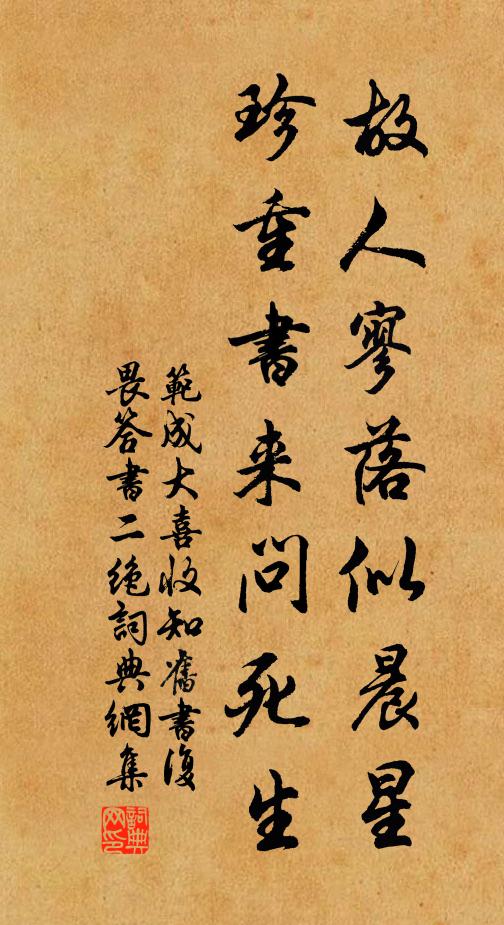 故人寥落似晨星
珍重書来問死生
範成大喜收知舊書復
畏答書二絶詞典網集
詞典
网印